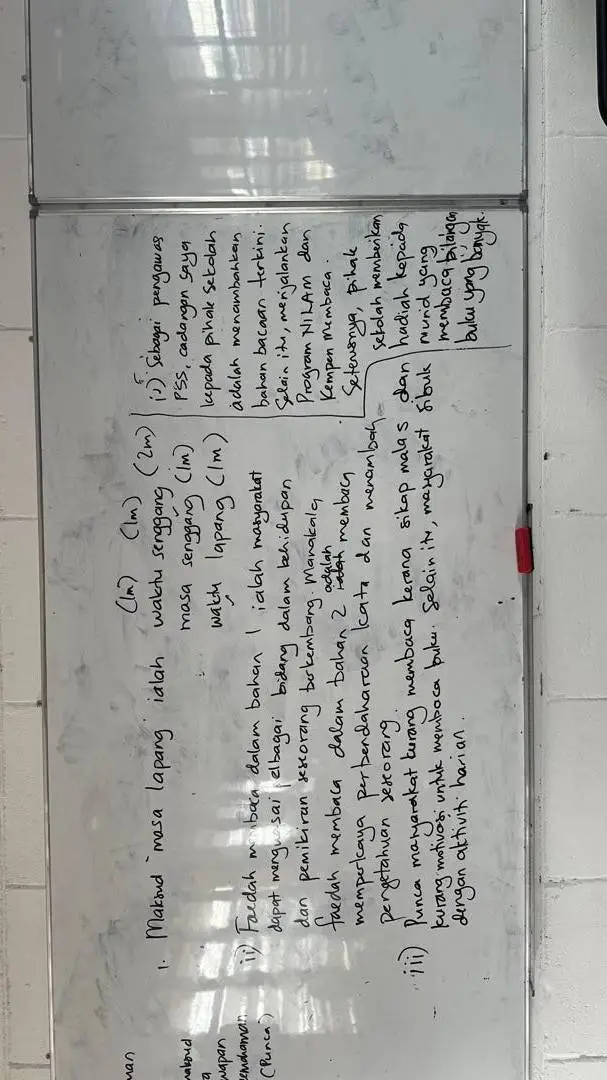 1. Maksud 'masa lapang' ialah waktu senggang (2m)
(1m) (1m)
masa senggang (1m)
waktu lapang (1m)
ii) Faedah membaca dalam bahan 1 ialah masyarakat
dapat menguasai pelbagai bidang dalam kehidupan
dan pemikiran seseorang berkembang. Manakala
faedah membaca dalam bahan 2 adalah membaca
memperkaya perbendaharaan kata dan menambah
pengetahuan seseorang.
iii) Punca masyarakat kurang membaca kerana sikap malas dan
kurang motivasi untuk membaca buku. Selain itu, masyarakat sibuk
dengan aktiviti harian.
Sebagai pengawas
PSS, cadangan saya
kepada pihak sekolah
adalah menambahkan
bahan bacaan terkini.
Selain itu, menjalankan
Program NILAM dan
Kempen Membaca.
Seterusnya, pihak
sekolah memberikan
hadiah kepada
murid yang
membaca bilangan
buku yang banyak.
wapan
(Punca)